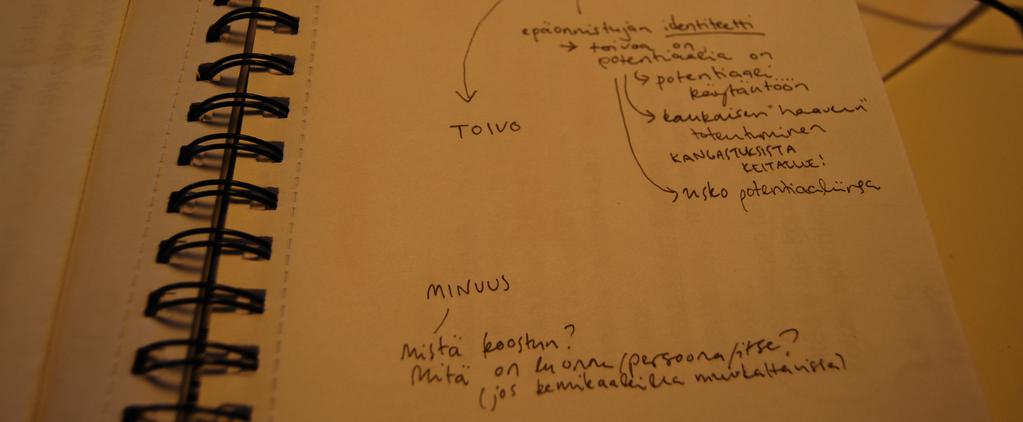 epäonnistujan identiteetti
→ toivoa on
potentiaalia on
↳ potentiaali....
käytäntöön
→ kaukaisen "haaveen"
toteutuminen
KANGASTUKSISTA
KEITAILLE!
→ usko potentiaaliinsa
TOIVO
MINUUS
Mistä koostun?
Mitä on luonne/persoona/itse?
(jos kemikaaleilla muokattavissa)